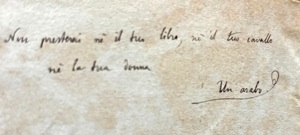 Non presterai nè il tuo libro, nè il tuo cavallo
nè la tua donna
Un arabo